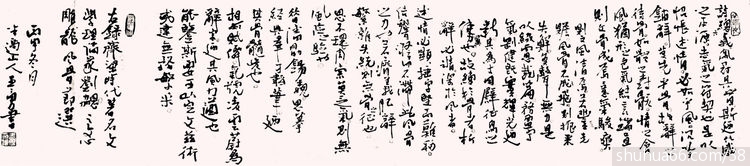 詩總六義風冠其首斯乃化感
之本源志氣之符契也是以
怊悵述情必始乎風沈吟
鋪辭莫先於骨故辭之
待骨如體之樹骸情之含
風猶形之包氣結言端直
則文骨成焉意氣駿爽
則文風清焉若豐藻克
贍風骨不飛則振采
失鮮負聲無力是
以綴慮裁篇務盈守
氣剛健既實輝光乃
新其為文用譬征鳥之
使翼也故練於骨者析
辭必精深乎風者
述情必顯捶字堅而難移
結響凝而不滯此風骨
之力也若瘠義肥辭
繁雜失統則無骨之徵也
思不環周索莫乏氣則無
風之驗也
昔潘勖錫魏思摹
經典群才韜筆乃
其骨髓峻也
相如賦仙氣號凌雲蔚為
辭宗乃其風力遒也
能鑒斯要可以定文茲術
或違無務繁采
右錄齊梁時代著名文
學理論家劉勰文心
雕龍風骨節選
shuhua66.com/38